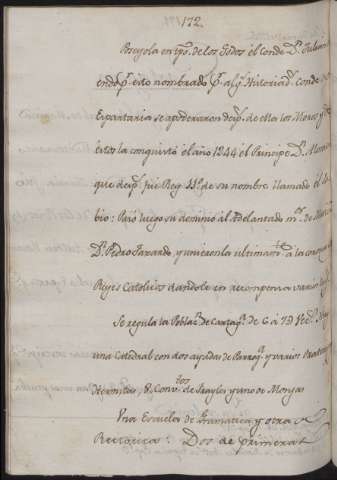 172.
Poseyola en tpo. de los Godos el conde Dn. Julian
endo pr. esto nombrado pr. alg. Historiad. Conde
Espartaria se apoderaron desp. de ella los Moros y
estos la conquistó el año 1244 el Principe Dn. Alonso
que desp. fue Rey 11º. de su nombre llamado el Sa
bio: Pasó luego su dominio al Adelantado mr. de Murcia
Dn. Pedro Faxardo, y unieronla ultimamte. a la corona
Reyes Catolicos dandole en recompensa varios
Se regula la Poblacn. de Cartaga. de 6 a 7
una Catedral con dos ayudas de Parroqa. y varios
Hermitas, 8. Convtos. de Frayles y uno de Monjas
Una Escuela de Gramatica y otra de
Retorica: Dos de primeras